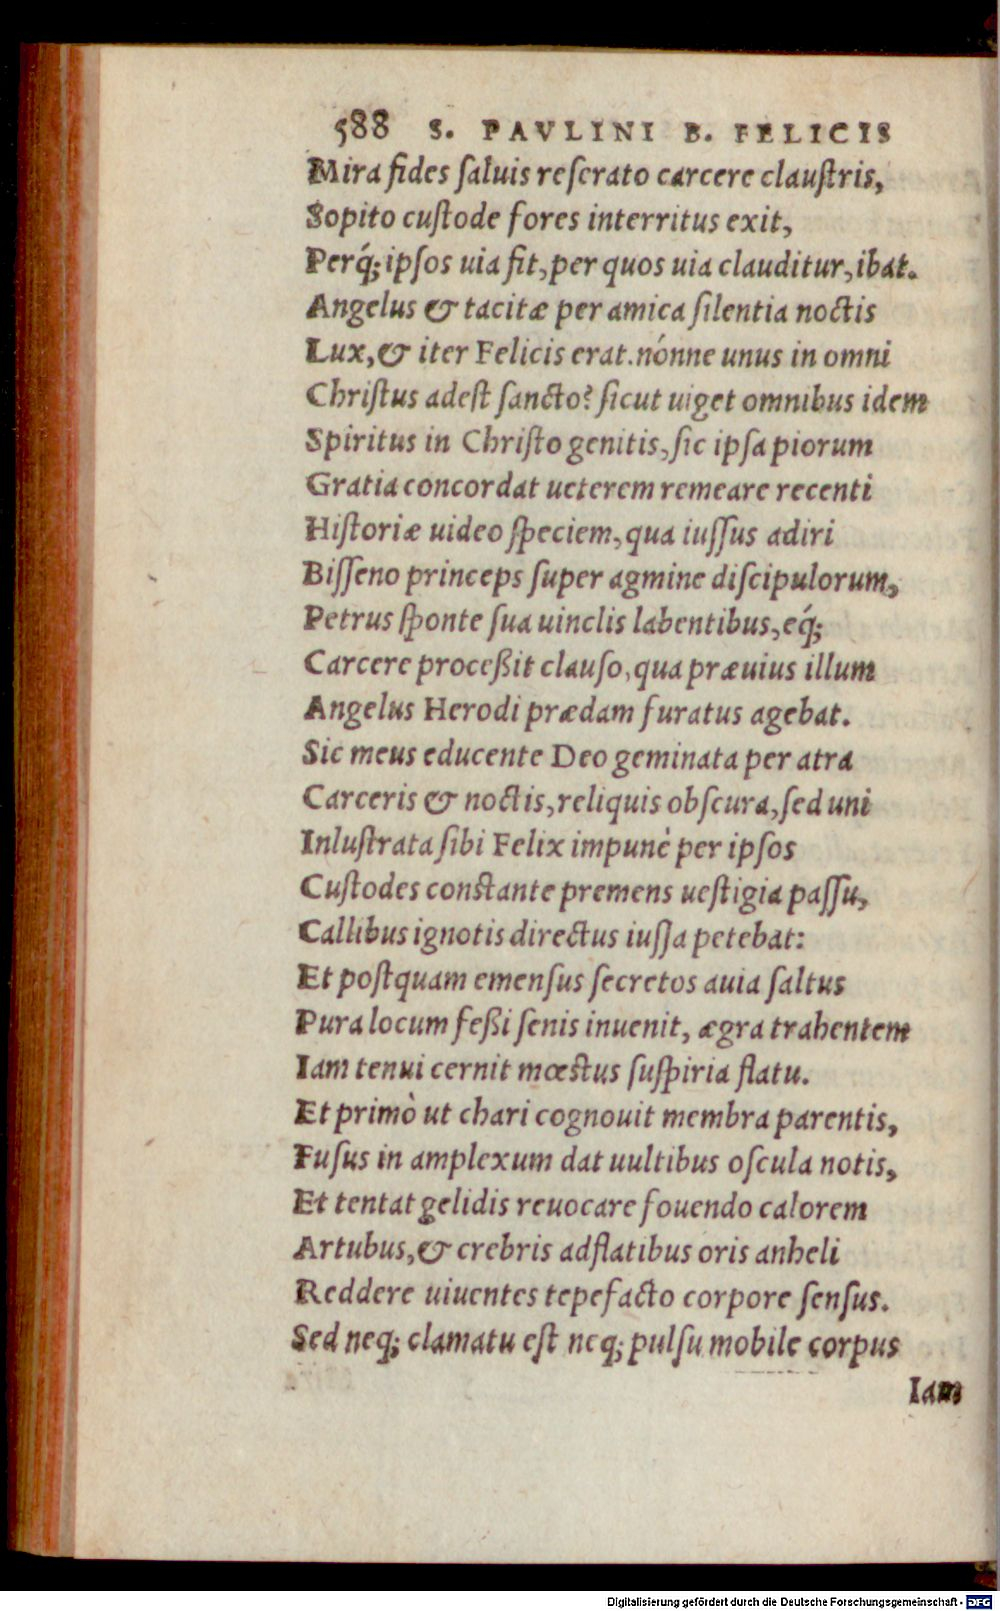 588 S. PAVLINI B. FELICIS
Mira fides ſaluis reſerato carcere clauſtris,
Sopito cuſtode fores interritus exit,
Perq́; ipſos uia fit, per quos uia clauditur, ibat.
Angelus & tacitæ per amica ſilentia noctis
Lux, & iter Felicis erat. nónne unus in omni
Chriſtus adeſt ſancto? ſicut uiget omnibus idem
Spiritus in Chriſto genitis, ſic ipſa piorum
Gratia concordat ueterem remeare recenti
Hiſtoriæ uideo ſpeciem, qua iuſſus adiri
Biſſeno princeps ſuper agmine diſcipulorum,
Petrus ſponte ſua uinclis labentibus, eq́;
Carcere proceßit clauſo, qua præuius illum
Angelus Herodi prædam furatus agebat.
Sic meus educente Deo geminata per atra
Carceris & noctis, reliquis obſcura, ſed uni
Inluſtrata ſibi Felix impunè per ipſos
Cuſtodes conſtante premens ueſtigia paſſu,
Callibus ignotis directus iuſſa petebat:
Et poſtquam emenſus ſecretos auia ſaltus
Pura locum feßi ſenis inuenit, ægra trahentem
Iam tenui cernit mœſtus ſuſpiria flatu.
Et primò ut chari cognouit membra parentis,
Fuſus in amplexum dat uultibus oſcula notis,
Et tentat gelidis reuocare fouendo calorem
Artubus, & crebris adflatibus oris anheli
Reddere uiuentes tepefacto corpore ſenſus.
Sed neq; clamatu eſt neq; pulſu mobile corpus
Iam
Digitalisierung gefördert durch die Deutsche Forschungsgemeinschaft - DFG